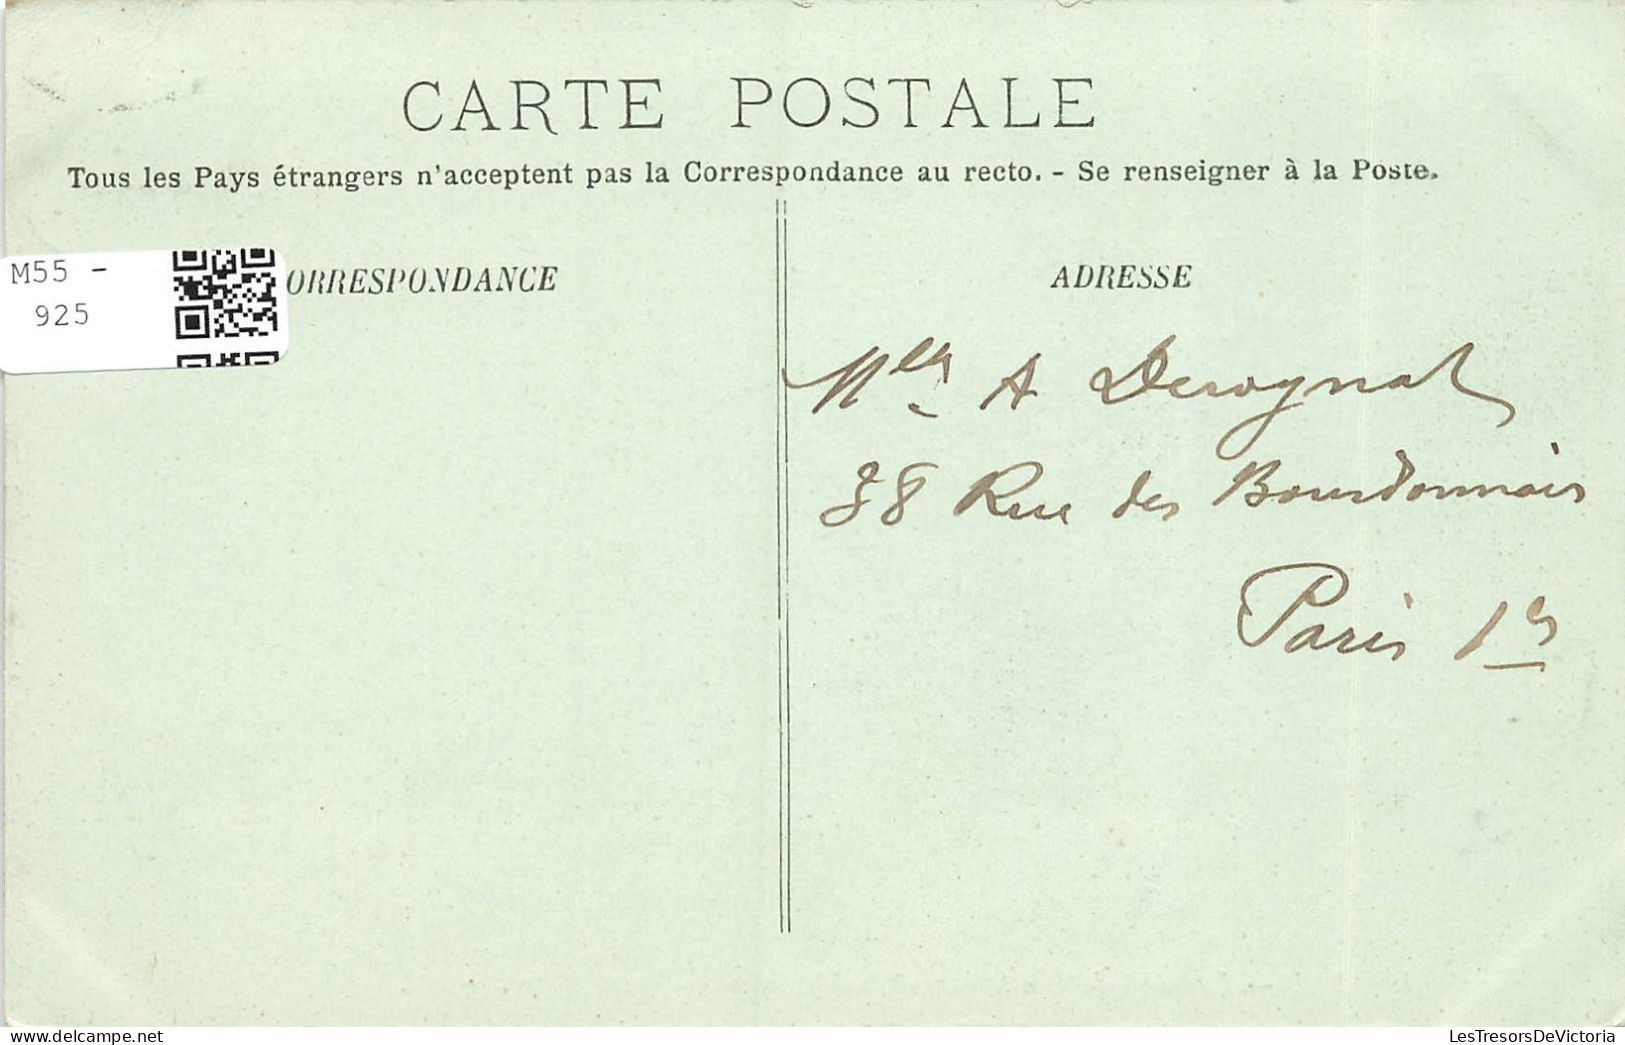 CARTE POSTALE
Tous les Pays étrangers n'acceptent pas la Correspondance au recto. - Se renseigner à la Poste.
M55 -
925
ORRESPONDANCE
ADRESSE
A Derognat
38 Rue des Bourdonnais
Paris 1er
LesTresorsDeVictoria
delcampe.net